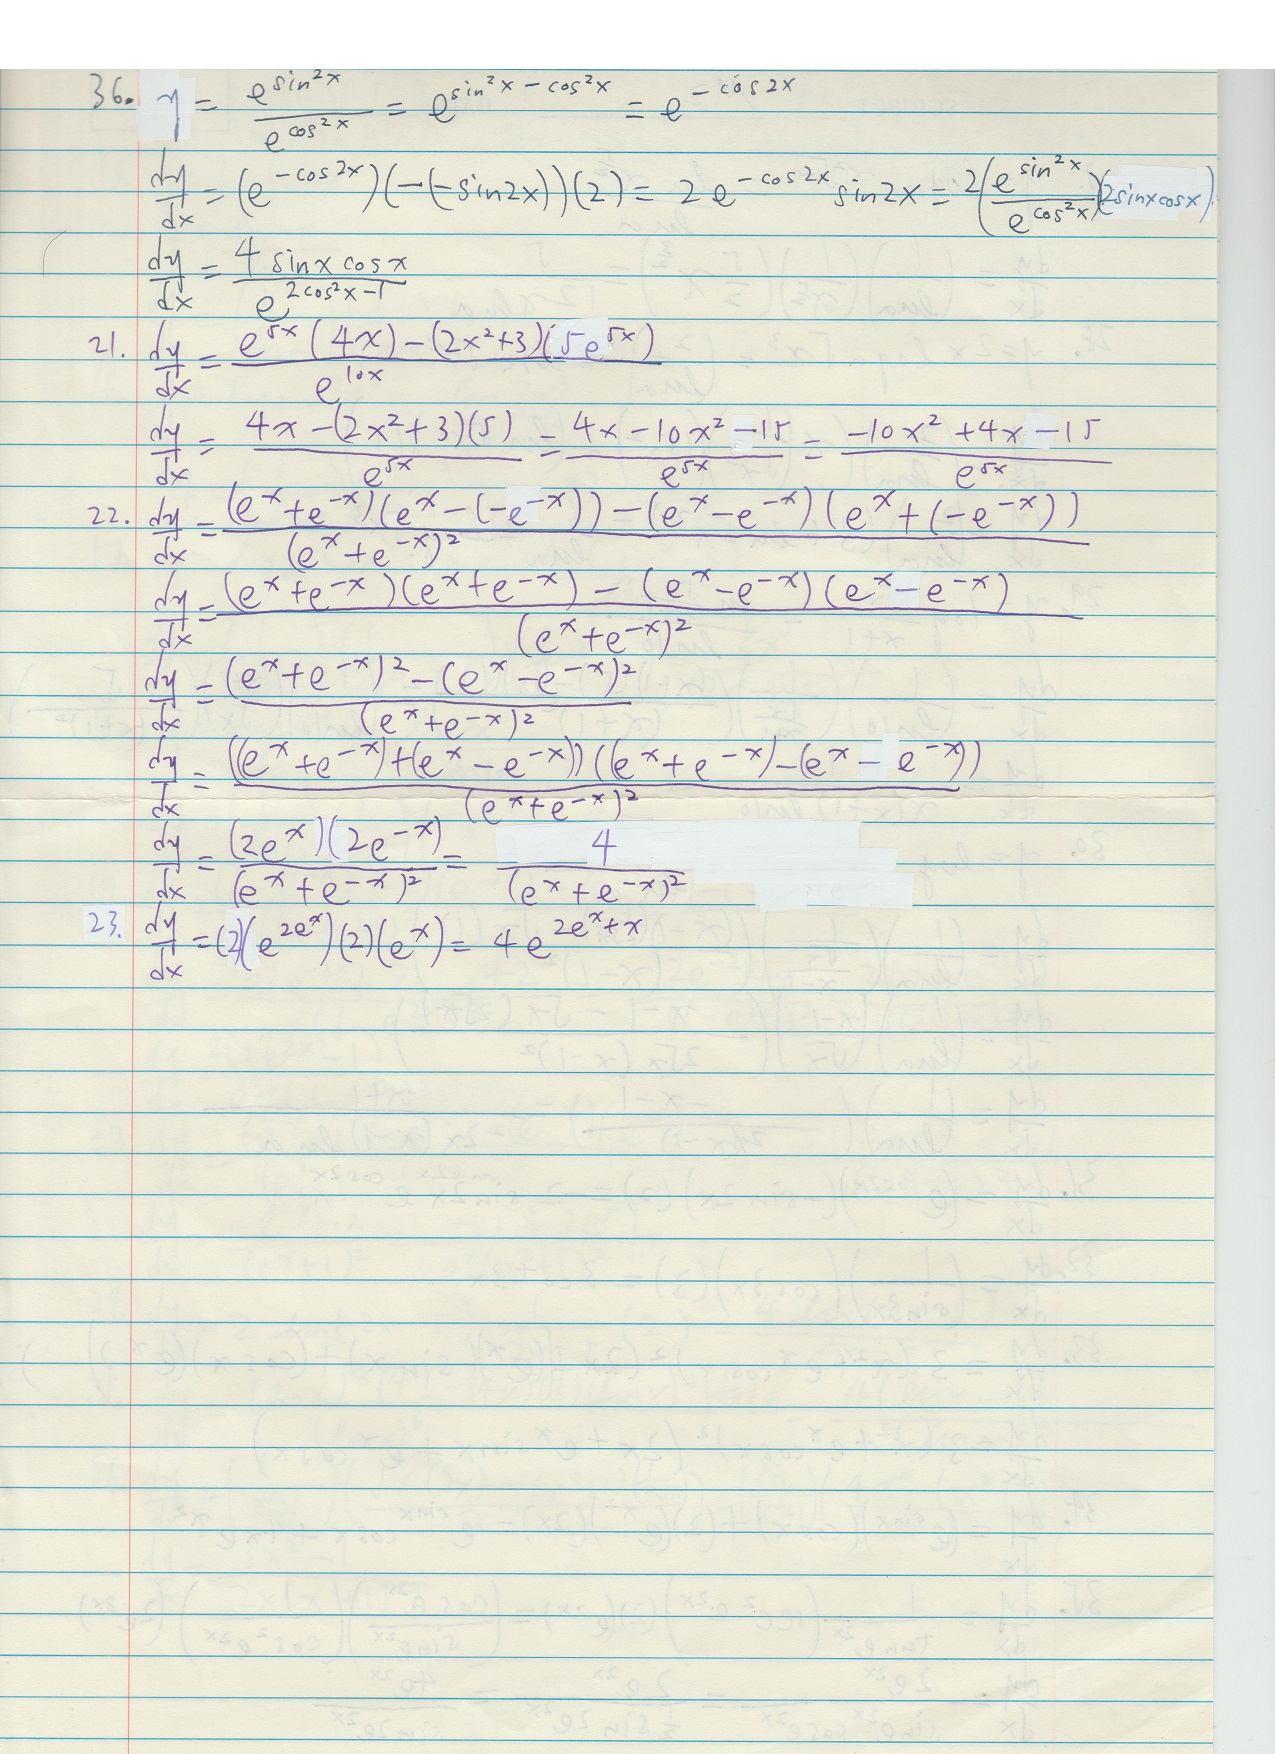 36. y = e^{sin²x} / e^{cos²x} = e^{sin²x - cos²x} = e^{-cos2x}
dy/dx = (e^{-cos2x})(-(-sin2x))(2) = 2e^{-cos2x} sin2x = 2(e^{sin²x} / e^{cos²x})(2sinxcosx)
dy/dx = 4 sinx cosx / e^{2cos²x-1}
21. dy/dx = e^{5x}(4x) - (2x²+3)(5e^{5x}) / e^{10x}
dy/dx = 4x - (2x²+3)(5) / e^{5x} = 4x - 10x² - 15 / e^{5x} = -10x² + 4x - 15 / e^{5x}
22. dy/dx = (e^x + e^{-x})(e^x - (-e^{-x})) - (e^x - e^{-x})(e^x + (-e^{-x})) / (e^x + e^{-x})²
dy/dx = (e^x + e^{-x})(e^x + e^{-x}) - (e^x - e^{-x})(e^x - e^{-x}) / (e^x + e^{-x})²
dy/dx = (e^x + e^{-x})² - (e^x - e^{-x})² / (e^x + e^{-x})²
dy/dx = ((e^x + e^{-x}) + (e^x - e^{-x}))((e^x + e^{-x}) - (e^x - e^{-x})) / (e^x + e^{-x})²
dy/dx = (2e^x)(2e^{-x}) / (e^x + e^{-x})² = 4 / (e^x + e^{-x})²
23. dy/dx = (2)(e^{2e^x})(2)(e^x) = 4e^{2e^x + x}